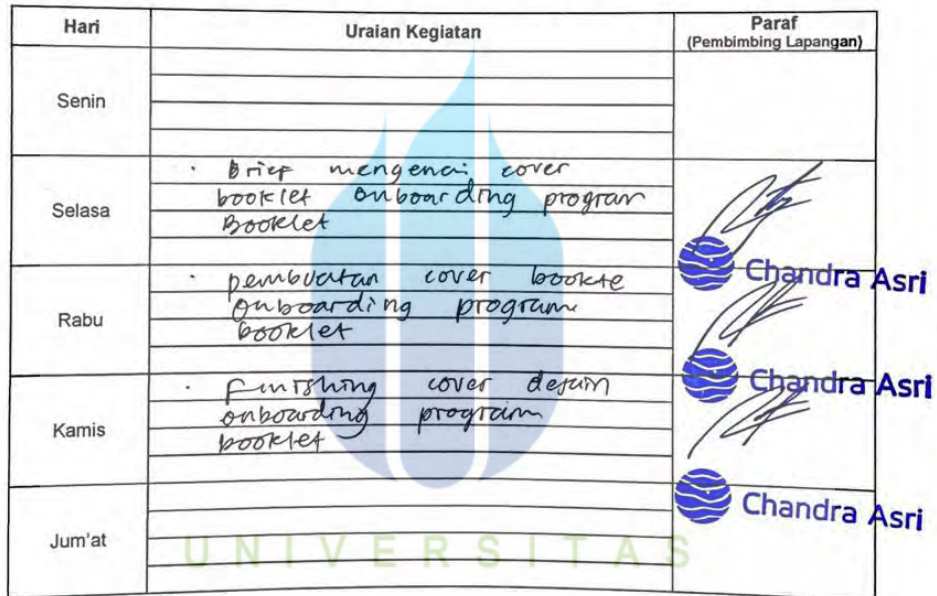 Hari Uraian Kegiatan Paraf
(Pembimbing Lapangan)
Senin
Selasa
· Brief mengenai cover
booklet onboarding program
Booklet
Chandra Asri
Rabu
· pembuatan cover bookte
onboarding program
booklet
Chandra Asri
Kamis
· Finishing cover desain
onboarding program
booklet
Chandra Asri
Jum'at
UNIVERSITAS